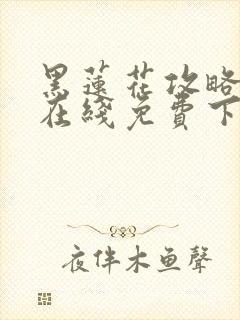 黑蓮花攻略
在綫免費下
夜伴木鱼聲